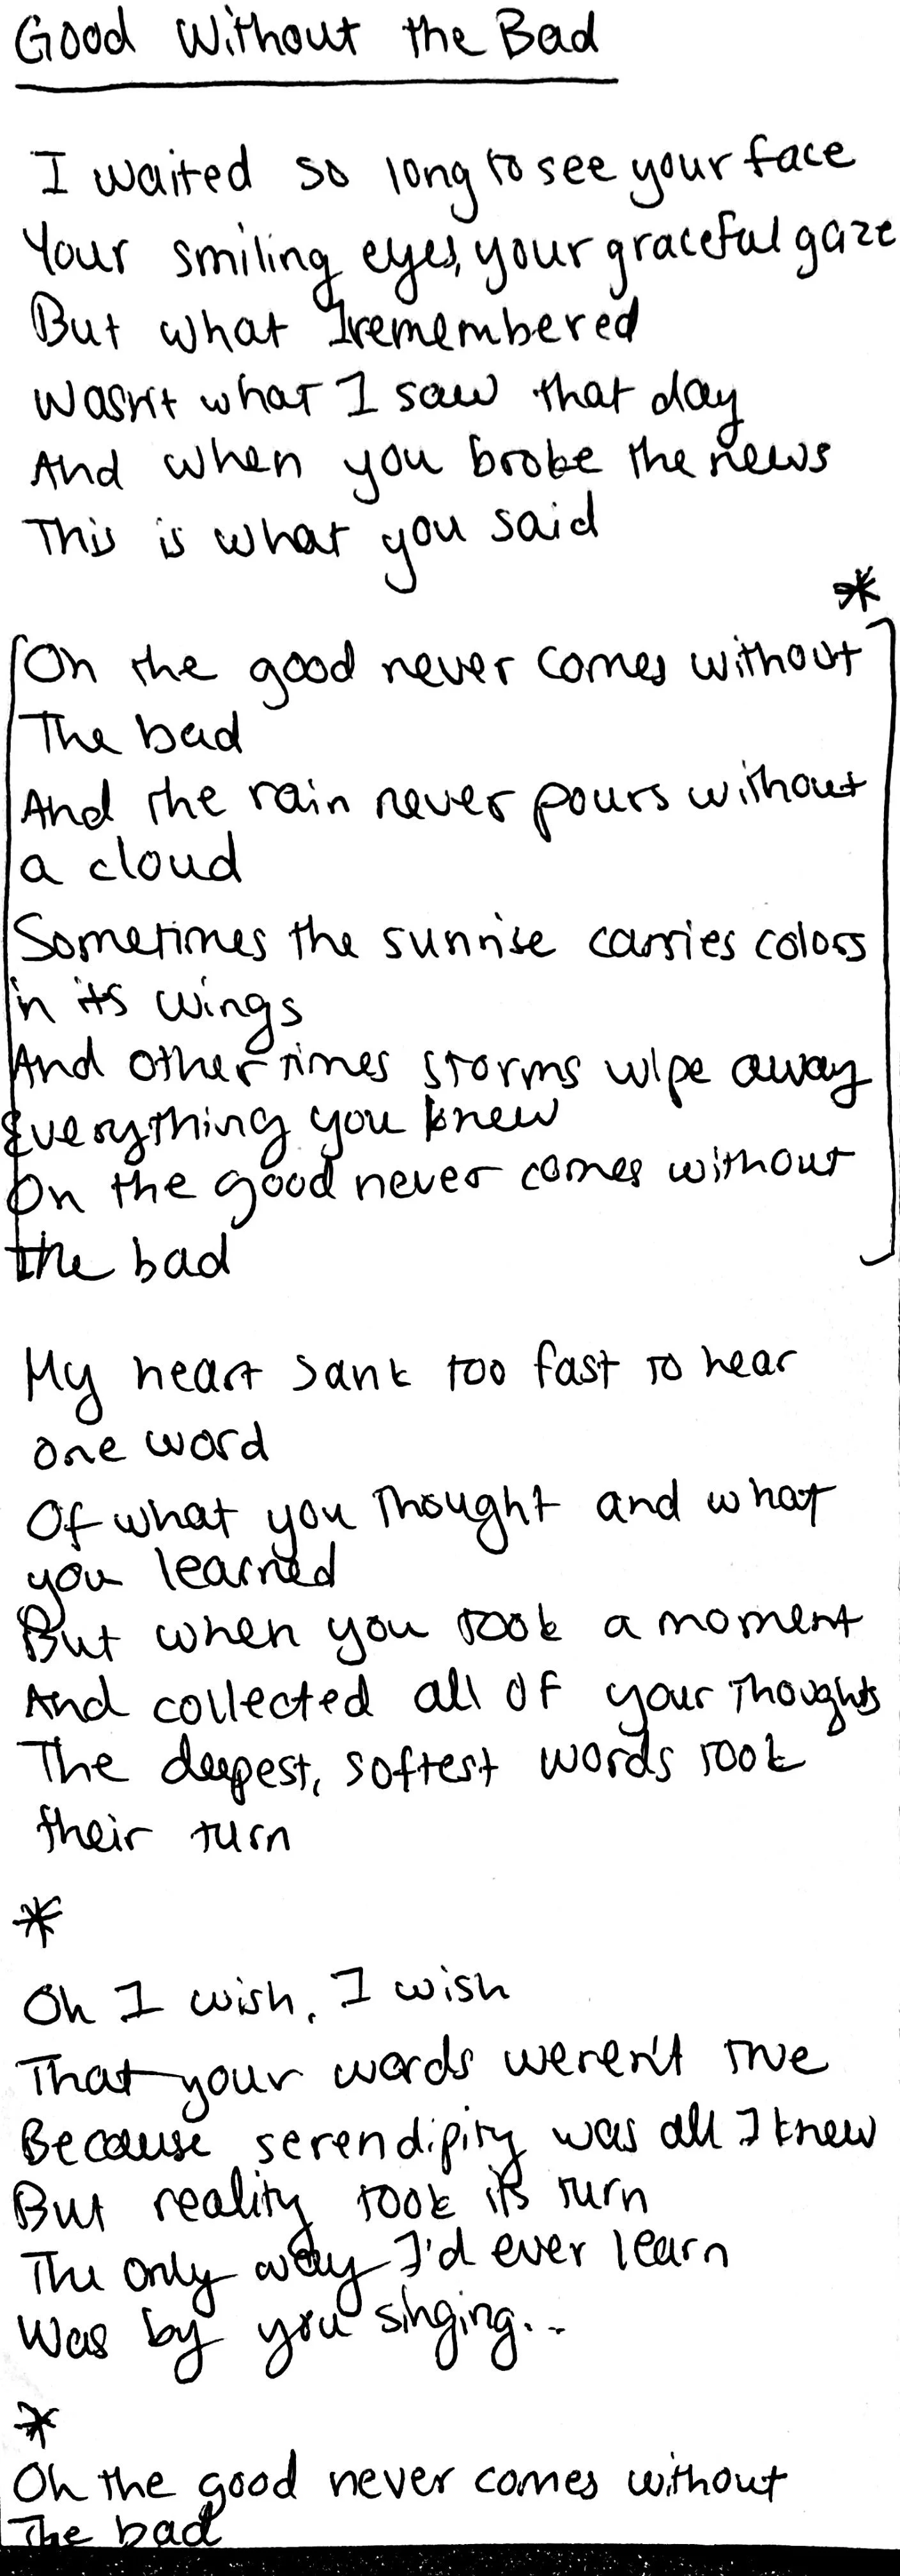 Good Without the Bad
I waited so long to see your face
Your smiling eyes, your graceful gaze
But what I remembered
Wasn't what I saw that day
And when you broke the news
This is what you said
*
Oh the good never comes without
The bad
And the rain never pours without
a cloud
Sometimes the sunrise carries colors
in its wings
And other times storms wipe away
Everything you knew
Oh the good never comes without
the bad
My heart sank too fast to hear
one word
Of what you thought and what
you learned
But when you took a moment
And collected all of your thoughts
The deepest, softest words took
their turn
*
Oh I wish, I wish
That your words weren't true
Because serendipity was all I knew
But reality took its turn
The only way I'd ever learn
Was by you singing...
*
Oh the good never comes without
The bad